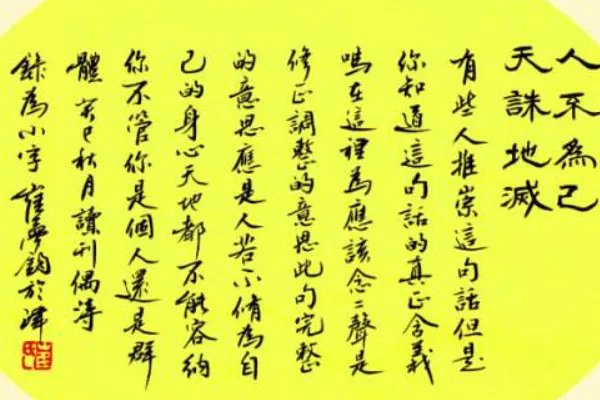 人不為己
天誅地滅
有些人推崇這句話但是
你知道這句話的真正含義
嗎在這裡為應該念二聲是
修正調整的意思此句完整
的意思應是人若不脩為自
己的身心天地都不能容納
你不管你是個人還是群
體 癸巳秋月讀刊偶得
錄為小字 崔鈞於